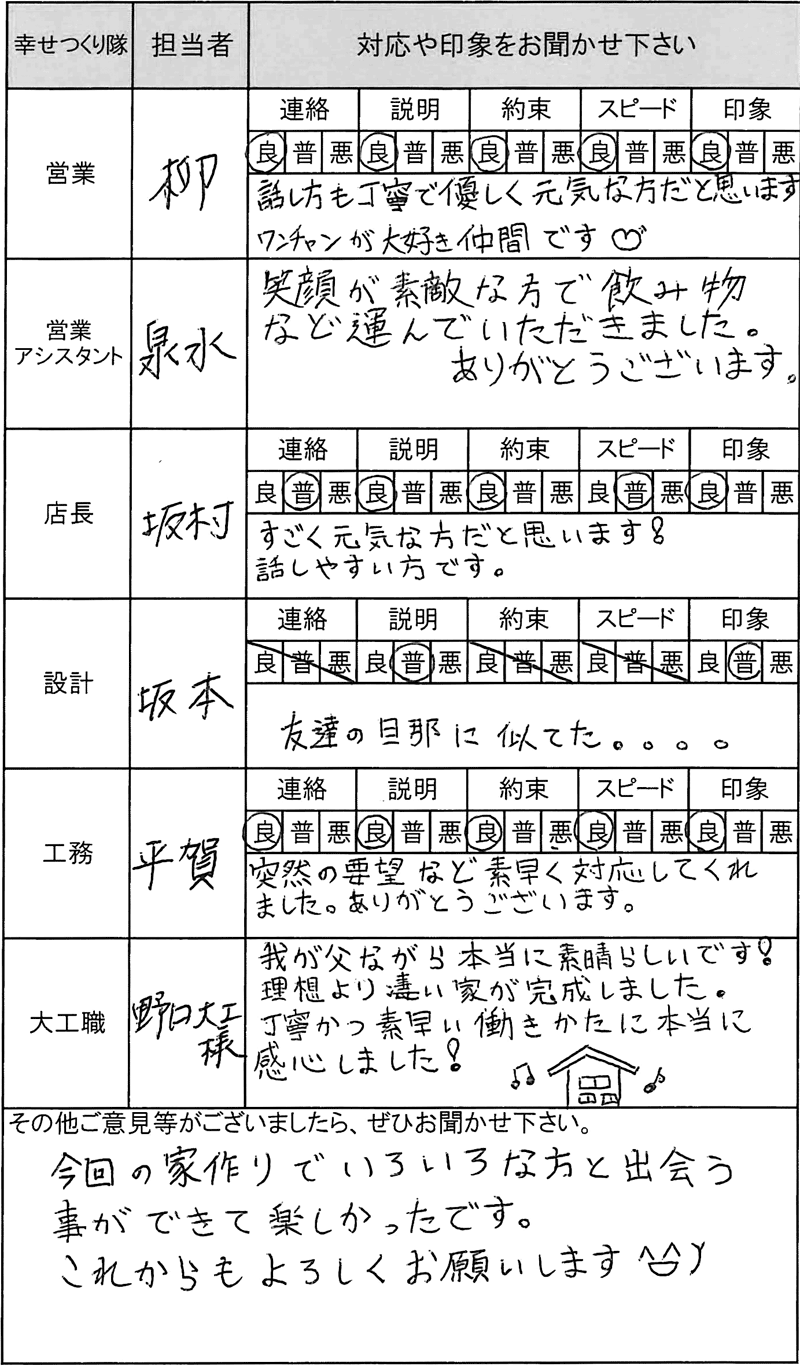 幸せつくり隊 担当者 対応や印象をお聞かせ下さい
営業 柳
連絡 説明 約束 スピード 印象
良 普 悪 良 普 悪 良 普 悪 良 普 悪 良 普 悪
話し方も丁寧で優しく元気な方だと思います
ワンチャンが大好き仲間です
営業
アシスタント
泉水
笑顔が素敵な方で飲み物
など運んでいただきました。
ありがとうございます。
店長 坂村
連絡 説明 約束 スピード 印象
良 普 悪 良 普 悪 良 普 悪 良 普 悪 良 普 悪
すごく元気な方だと思います!
話しやすい方です。
設計 坂本
連絡 説明 約束 スピード 印象
良 普 悪 良 普 悪 良 普 悪 良 普 悪 良 普 悪
友達の旦那に似てた。。。。
工務 平賀
連絡 説明 約束 スピード 印象
良 普 悪 良 普 悪 良 普 悪 良 普 悪 良 普 悪
突然の要望など素早く対応してくれ
ました。ありがとうございます。
大工職
野口大工
様
我が父ながら本当に素晴らしいです!
理想より凄い家が完成しました。
丁寧かつ素早い働きかたに本当に
感心しました!
その他ご意見等がございましたら、ぜひお聞かせ下さい。
今回の家作りでいろいろな方と出会う
事ができて楽しかったです。
これからもよろしくお願いします